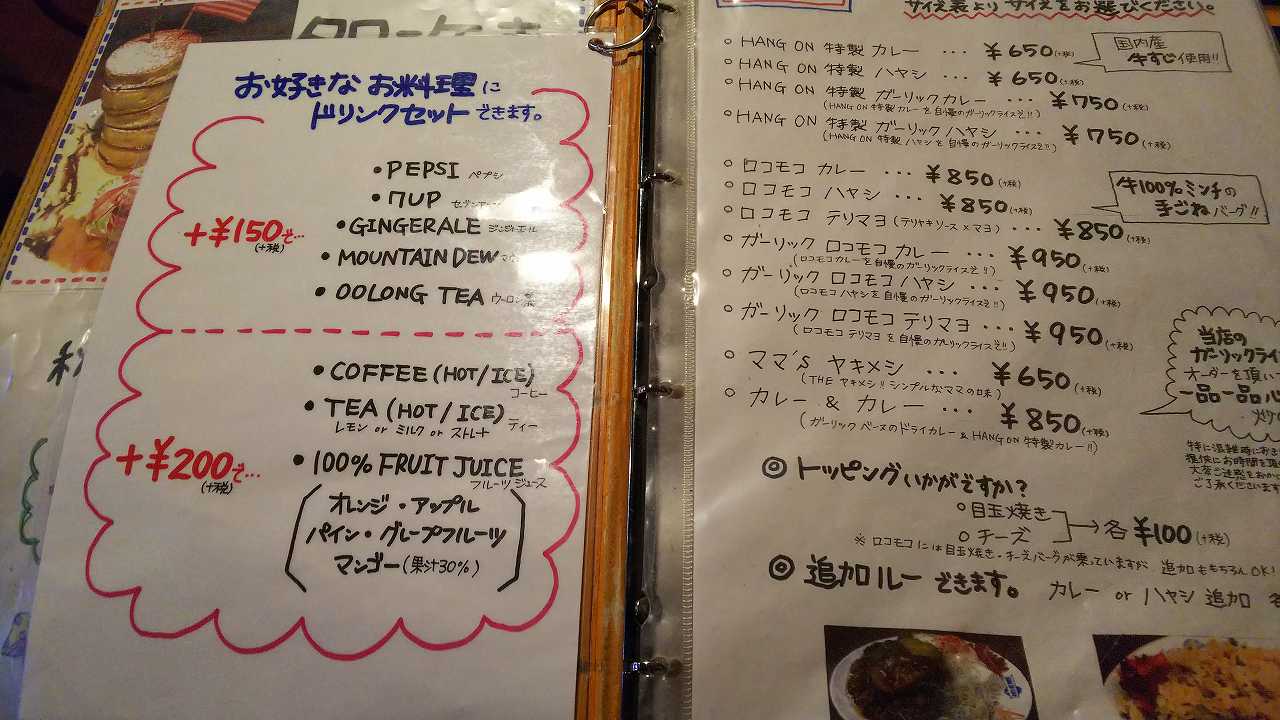 お好きな お料理に
ドリンクセット できます。
+¥150で…
(+税)
• PEPSI ペプシ
• 7UP
• GINGERALE ジンジャーエール
• MOUNTAIN DEW
• OOLONG TEA ウーロン茶
+¥200で…
(+税)
• COFFEE (HOT/ICE)
コーヒー
• TEA (HOT/ICE)
レモン or ミルク or ストレート ティー
• 100% FRUIT JUICE
フルーツジュース
オレンジ・アップル
パイン・グレープフルーツ
マンゴー(果汁30%)
サイズ表より サイズをお選びください。
○ HANG ON 特製 カレー ... ¥650(+税)
国内産
牛すじ使用!!
○ HANG ON 特製 ハヤシ ... ¥650(+税)
○ HANG ON 特製 ガーリックカレー ... ¥750(+税)
(HANG ON 特製カレーを自慢のガーリックライスで!!)
○ HANG ON 特製 ガーリックハヤシ ... ¥750(+税)
(HANG ON 特製ハヤシを自慢のガーリックライスで!!)
○ ロコモコ カレー ... ¥850(+税)
牛100%ミンチの
手ごねバーグ!!
○ ロコモコ ハヤシ ... ¥850(+税)
○ ロコモコ テリマヨ (テリヤキソース×マヨ) ... ¥850(+税)
○ ガーリック ロコモコ カレー ... ¥950(+税)
(ロコモコカレーを自慢のガーリックライスで!!)
○ ガーリック ロコモコ ハヤシ ... ¥950(+税)
(ロコモコハヤシを自慢のガーリックライスで!!)
○ ガーリック ロコモコ テリマヨ ... ¥950(+税)
(ロコモコ テリマヨを自慢のガーリックライスで!!)
○ ママ'S ヤキメシ ... ¥650(+税)
(THE ヤキメシ!! シンプルなママの味)
○ カレー & カレー ... ¥850(+税)
(ガーリックベースのドライカレー & HANG ON 特製カレー!!)
当店の
ガーリックライ
オーダーを頂い
一品一品
特に混雑時におき
提供にお時間を頂
大変ご迷惑をおか
ご了承くださいませ
◎ トッピングいかがですか?
○目玉焼き
○チーズ
→各 ¥100(+税)
※ ロコモコには目玉焼き・チーズバーグが乗っていますが 追加ももちろんOK!
◎ 追加ルー できます。 カレー or ハヤシ 追加 各